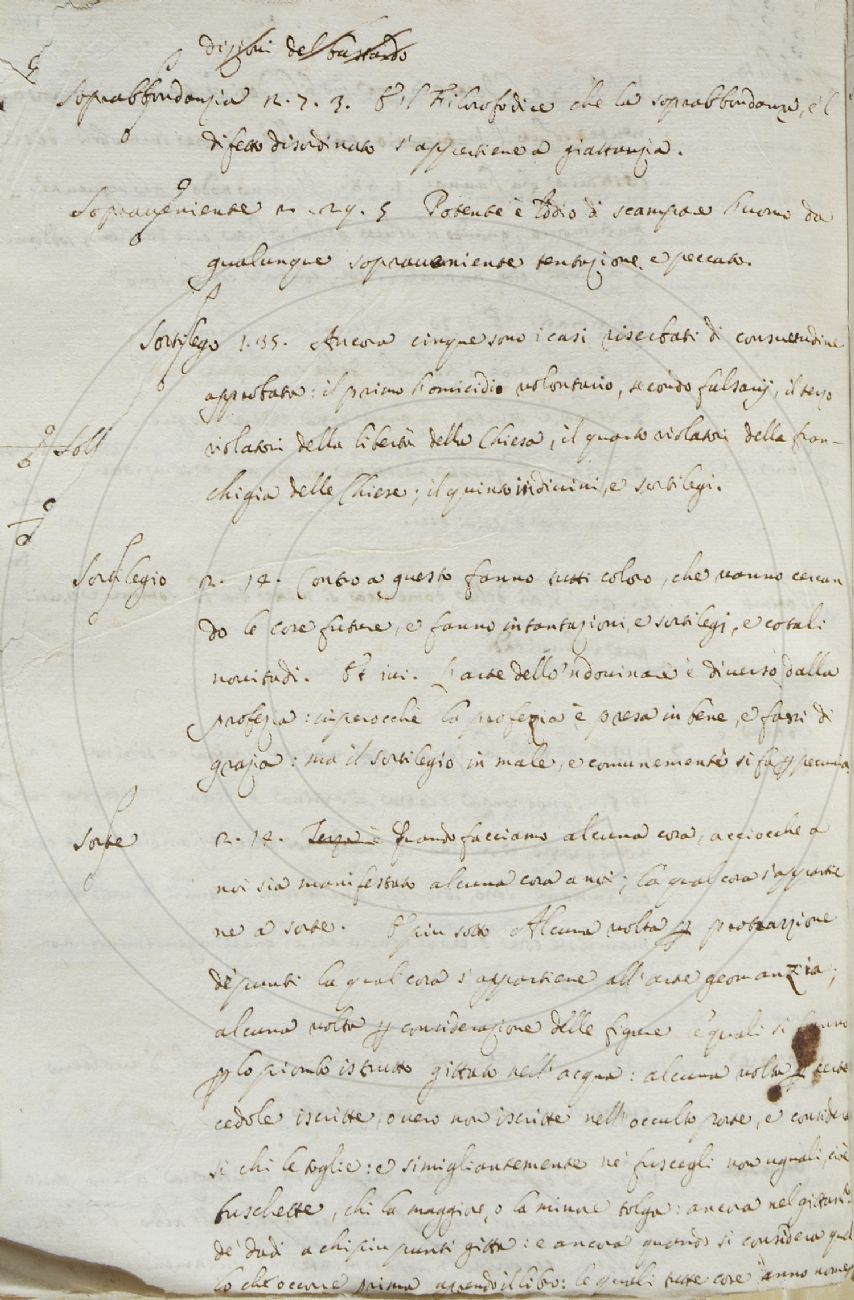 digioni del bastardo
Soprabbondanzia 12. 7. 3. E 'l Filosofo dice che la soprabbondanza, e 'l
difetto disordinato s'appertiene a giattanzia.
Sopraveniente 12. 29. 5 Potente è Iddio di scampare huomo da
qualunque sopraveniente tentazione, e peccato.
Sortilego 1. 35. Ancora cinque sono i casi riserbati di consuetudine
approbata: il primo homicidio volontario, secondo falsarij, il terzo
violatori della libertà della Chiesa, il quarto violatori della fran-
Soll
chigia delle Chiese; il quinto indivini, e sortilegi.
Sortilegio 2. 14. Contro a questo fanno tutti coloro, che vanno cercan
do le cose future, e fanno incantazioni, e sortilegj, e cotali
novitadi. Et ivi. L'arte dello 'ndovinare è diverso dalla
profezia: imperocchè la profezia è presa in bene, e fassi di
grazia: ma il sortilegio in male, e comunemente si fa p pecunia.
Sorte 2. 14. Terza è Quando facciamo alcuna cosa, acciocchè a
noi sia manifestato alcuna cosa a noi; la qual cosa s'appartie
ne a sorte. E più sotto Alcuna volta p protrazione
de' punti la qual cosa s'appartiene all'arte geomanzia;
alcuna volta p considerazione delle figure le quali si fanno
p lo piombo istrutto gittato nell'acqua: alcuna volta p certe
cedole iscritte, overo non iscritte nell'occulto poste, e consider
si chi le toglie: e simigliantemente ne' fuscegli non uguali, cioè
buschette, chi la maggiore, o la minore tolga: ancora nel gittare
de' dadi a chi più punti gitta: e ancora quando si considera quel
lo che occorre prima aprendo il libro: le quali tutte cose anno nome